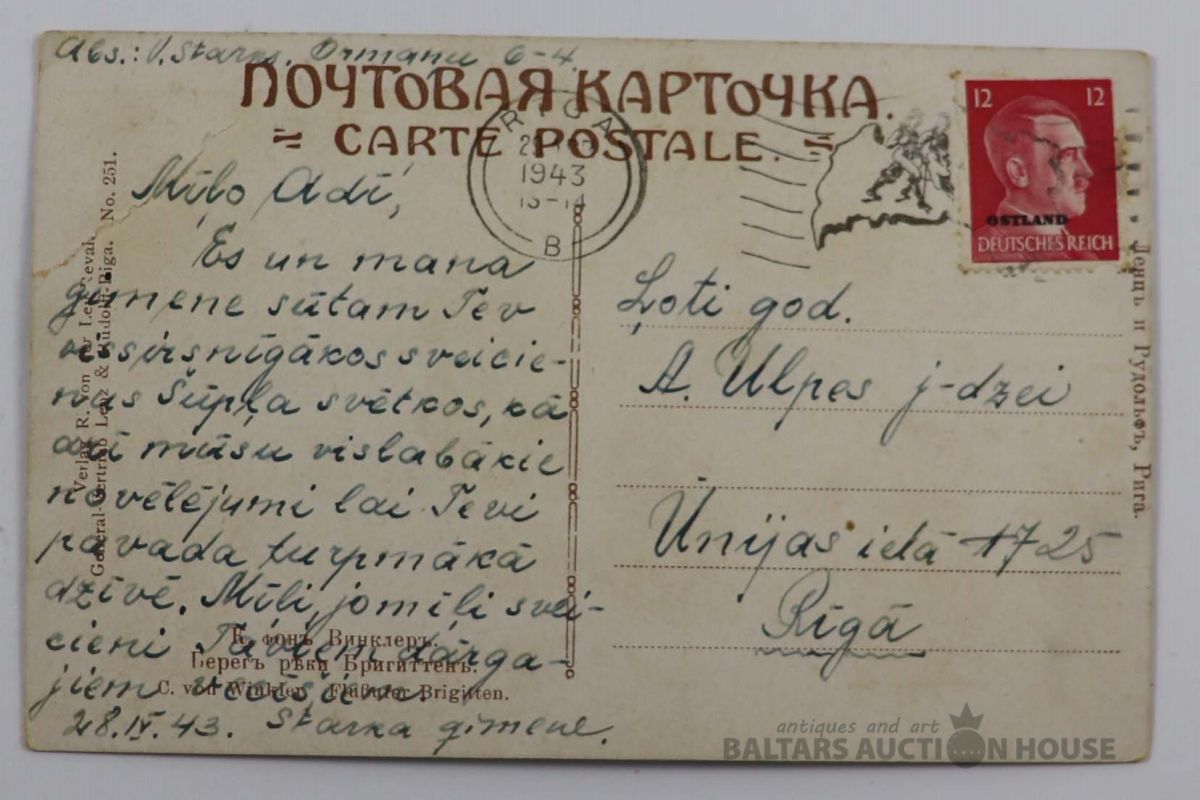 Abs.: V. Starks, Ormaņu 6-4.
ПОЧТОВАЯ КАРТОЧКА.
CARTE POSTALE.
RIGA
1943
B
12 12
OSTLAND
DEUTSCHES REICH
Mīļo Adī,
Es un mana
ģimene sūtam Tev
vissirsnīgākos sveicie-
nus Šūpļa svētkos, kā
arī mūsu vislabākie
novēlējumi lai Tevi
pavada turpmākā
dzīvē. Mīļi, jo mīļi svei-
cieni Taviem dārga-
jiem
28.IV.43. Starka ģimene.
Ļoti god.
A. Ulpes j-dzei
Ūnijas ielā 17 25
Rīgā
Verlag R. von der Ley Reval.
General-Vertrieb Lenz & Rudolff-Riga. No. 251.
Ленцъ и Рудольфъ, Рига.
К. фонъ Винклеръ.
Берегъ рѣки Бригиттенъ.
C. von Winkler. Flußufer Brigitten.
antiques and art
BALTARS AUCTION HOUSE